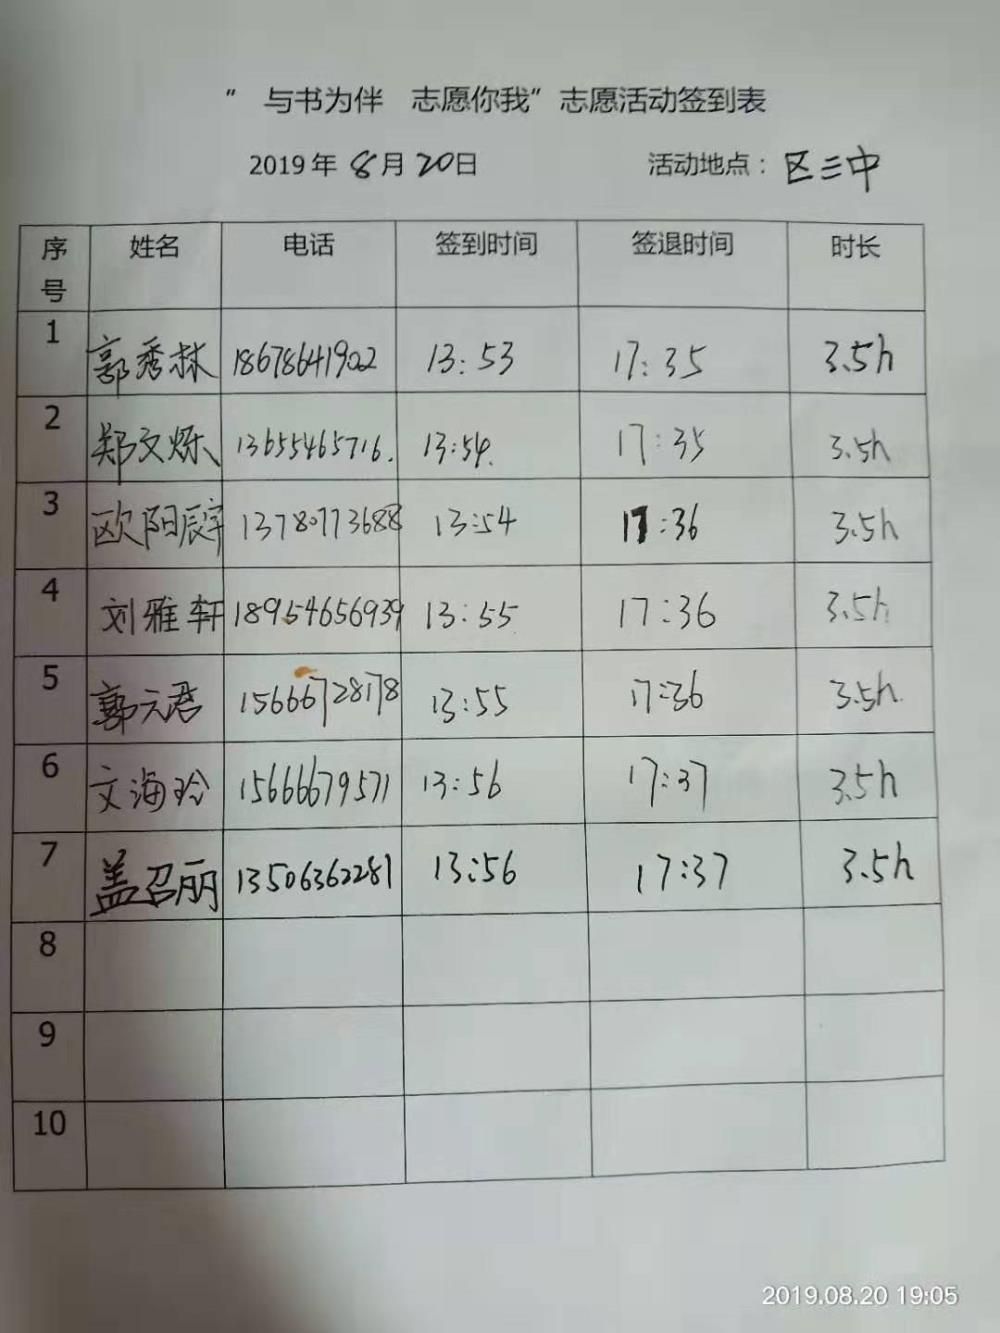 “ 与书为伴 志愿你我”志愿活动签到表
2019年 8月20日 活动地点：区三中
序号 姓名 电话 签到时间 签退时间 时长
1 郭秀林 18678641902 13:53 17:35 3.5h
2 郑文烁 13655465716. 13:54. 17:35 3.5h
3 欧阳辰宇 13780773688 13:54 17:36 3.5h
4 刘雅轩 18954656939 13:55 17:36 3.5h
5 郭元君 15666728178 13:55 17:36 3.5h
6 文海玲 15666679571 13:56 17:37 3.5h
7 盖召丽 13506362281 13:56 17:37 3.5h
8
9
10
2019.08.20 19:05